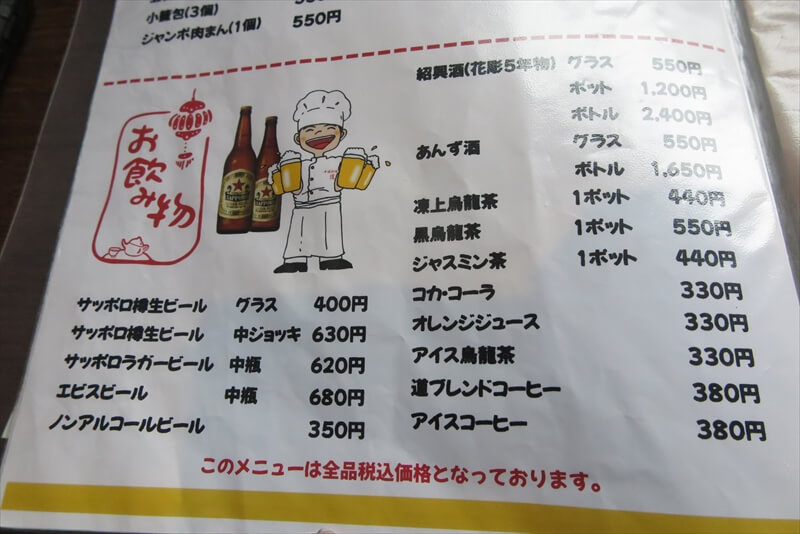 小籠包(3個)
ジャンボ肉まん(1個) 550円
お飲み物
SAPPORO
サッポロ樽生ビール グラス 400円
サッポロ樽生ビール 中ジョッキ 630円
サッポロラガービール 中瓶 620円
ヱビスビール 中瓶 680円
ノンアルコールビール 350円
紹興酒(花彫5年物) グラス 550円
ポット 1,200円
ボトル 2,400円
あんず酒 グラス 550円
ボトル 1,650円
凍上烏龍茶 1ポット 440円
黒烏龍茶 1ポット 550円
ジャスミン茶 1ポット 440円
コカ・コーラ 330円
オレンジジュース 330円
アイス烏龍茶 330円
道ブレンドコーヒー 380円
アイスコーヒー 380円
このメニューは全品税込価格となっております。